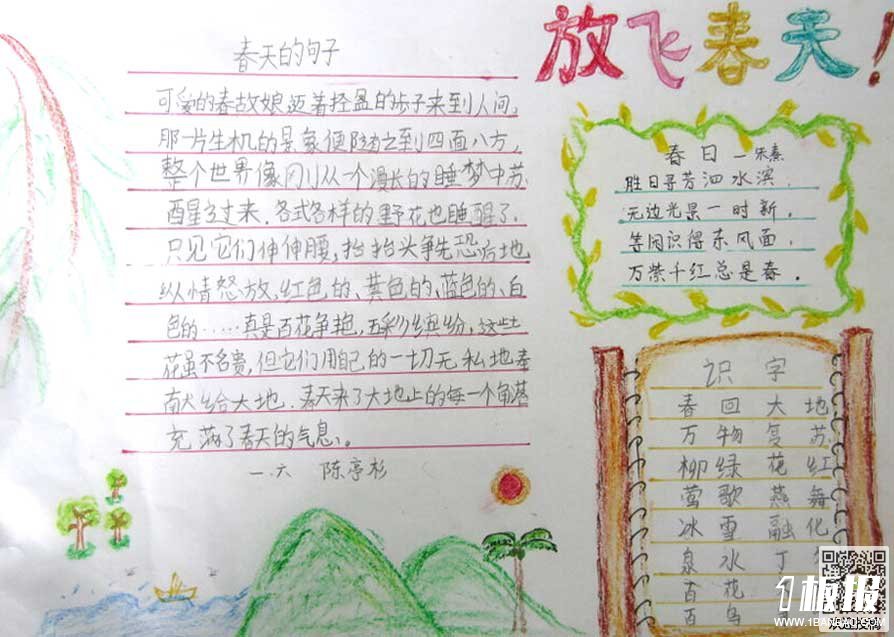 放飞春天!
春天的句子
可爱的春故娘迈着轻盈的步子来到人间,
那一片生机的景象便随之到四面八方,
整个世界像冈刂从一个漫长的睡梦中苏
醒了过来.各式各样的野花也睡醒了.
只见它们伸伸腰,抬抬头争先恐后地
纵情怒放,红色的、黄色的、蓝色的、白
色的……真是百花争艳,五彩缤纷,这些
花虽不名贵,但它们用自己的一切无私地奉
献给大地.春天来了大地上的每一个角落
充满了春天的气息。
一.六 陈亭杉
春日 —朱熹
胜日寻芳泗水滨,
无边光景一时新,
等闲识得东风面,
万紫千红总是春.
识字
春回大地
万物复苏
柳绿花红
莺歌燕舞
冰雪融化
泉水丁
百花
百鸟
1板报
WWW.1BANBAO.COM
欢迎投稿